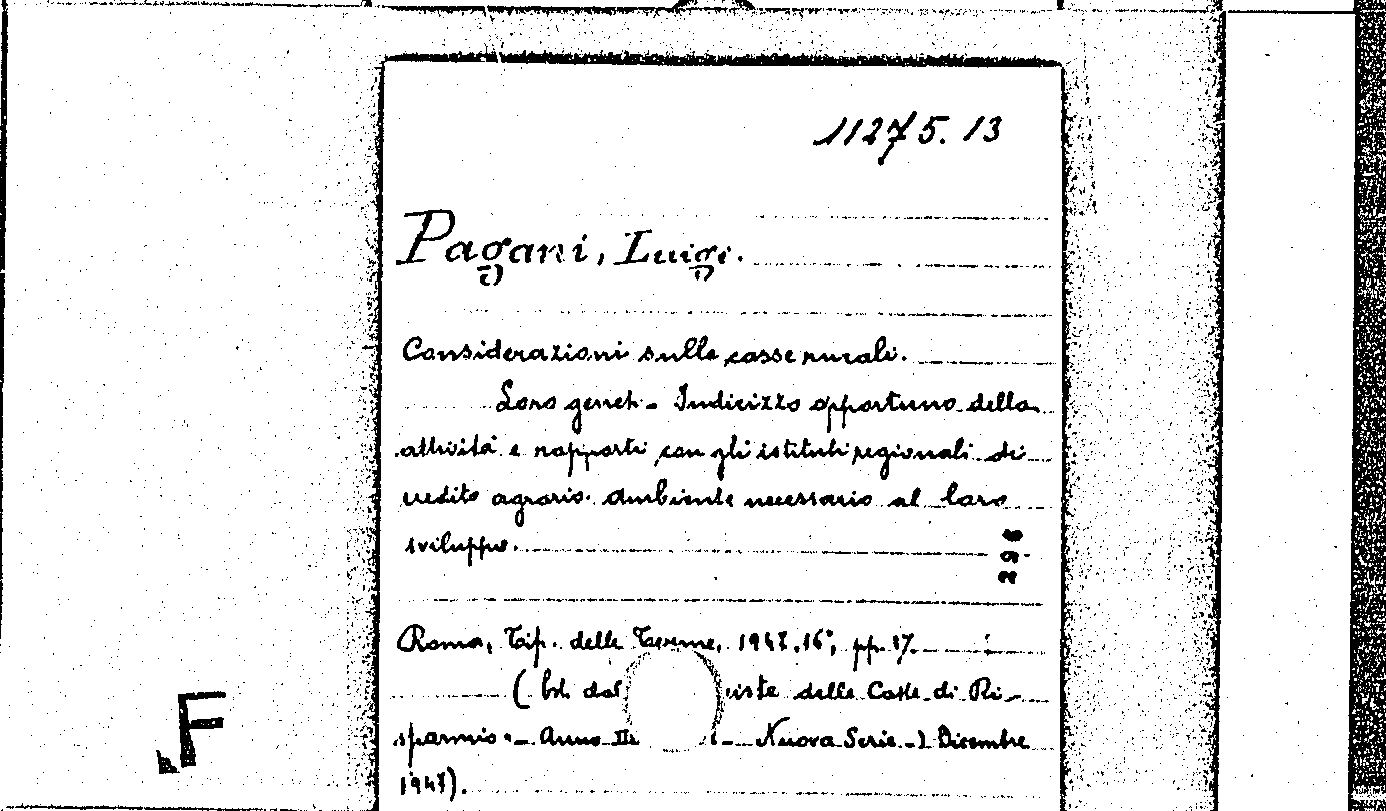 11275.13
Pagani, Luigi.
Considerazioni sulle casse rurali.
Loro - Indirizzo opportuno della
attività e rapporti con gli istituti regionali di
credito agrario. Ambiente necessario al loro
sviluppo.
298
Roma, Tip. delle Terme, 1947.16°, pp. 17.
( dal delle Casse di Ri-
sparmio - Anno - Nuova Serie - Dicembre
1947).
F